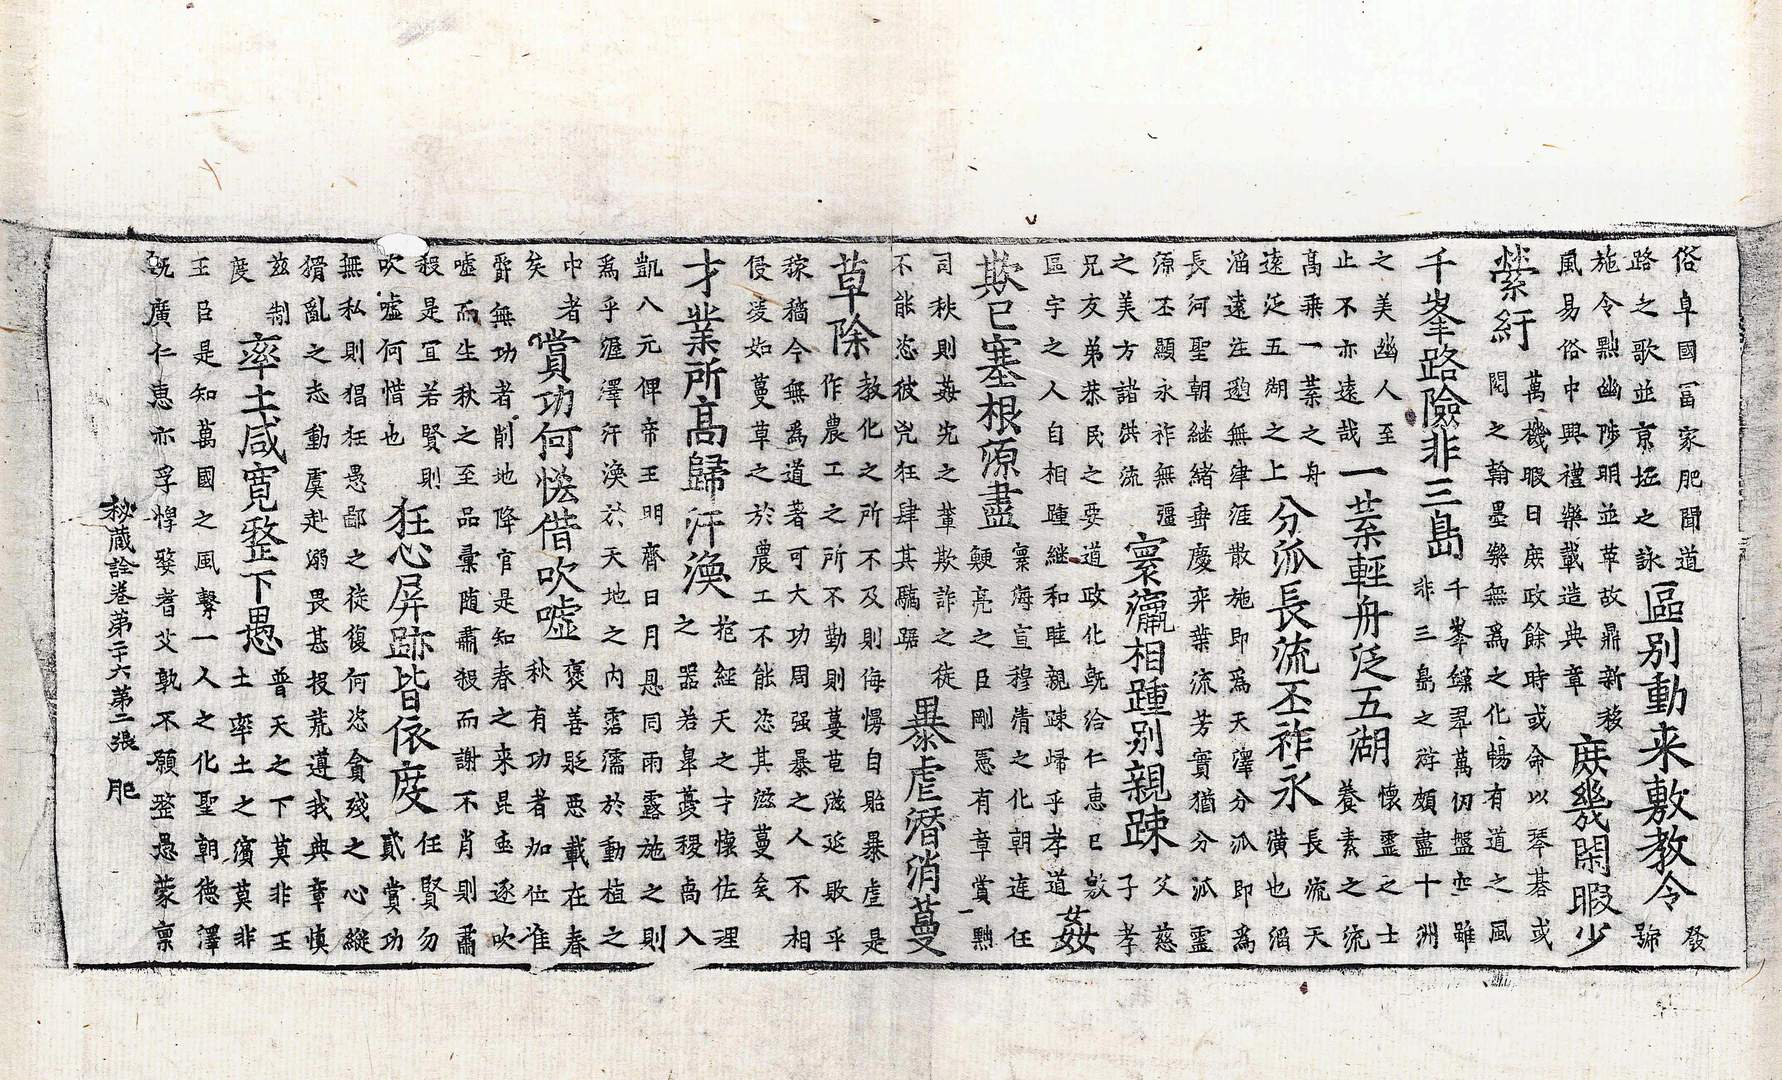 俗卓國冨家肥聞道
路之歌並京坵之詠
區别動来敷教令
發
號
施令黜幽陟明並革故鼎新移
風易俗中興禮樂載造典章
庻幾閑暇少
縈紆
萬機暇日庻政餘時或命以琴碁或
閱之翰墨樂無爲之化暢有道之風
千峯路險非三島
千峯鏁翠萬仞盤空雖
非三島之游頗盡十洲
之美幽人至
止不亦遠哉
一葉輕舟泛五湖
懷靈之士
養素之流
高乗一葉之舟
遠泛五湖之上
分派長流丕祚永
長流天
潢也滔
滔遠注遐無津涯散施即爲天澤分派即爲
長河聖朝継緒垂慶弈葉流芳實猶分派靈
源丕顯永祚無疆
之美方諸洪流
寰瀛相踵别親踈
父慈
子孝
兄友弟恭民之要道政化既給仁恵已敷
區宇之人自相踵継和睦親踈歸乎孝道
姦
欺已塞根源盡
寰海宣穆清之化朝連任
鯁亮之臣剛慝有章賞一黜
司秋則毎先之軰欺詐之徒
不能恣彼兇狂肆其驕踞
暴虐潜消蔓
草除
教化之所不及則侮愕自貽暴虐是
作農工之所不勤則蔓苞滋延敗乎
稼穡今無爲道著可大功周强暴之人不相
侵凌如蔓草之於農工不能恣其滋蔓矣
才業所高歸汗渙
㧞經天之才懐佐理
之器若臯䕫稷卨入
凱八元俾帝王明齊日月恩同雨露施之則
爲乎渥澤汗渙於天地之内霑濡於動植之
中者
矣
賞功何恡借吹嘘
褒善貶惡載在春
秋有功者加位進
爵無功者削地降官是知春之来昆虫逐吹
嘘而生秋之至品彚随肅殺而謝不肖則肅
殺是冝若賢則
吹嘘何惜也
狂心屏跡皆依度
任賢勿
貳賞功
無私則猖狂愚鄙之徒復何恣貪殘之心縱
猾亂之志動虞赴溺畏甚投荒遵我典章慎
兹制
度
率土咸寛整下愚
普天之下莫非王
土率土之濱莫非
王臣是知萬國之風繫一人之化聖朝徳澤
既廣仁恵亦孚惸嫠耆艾孰不願整愚蒙稟
秘蔵詮卷第二十六第二張 肥